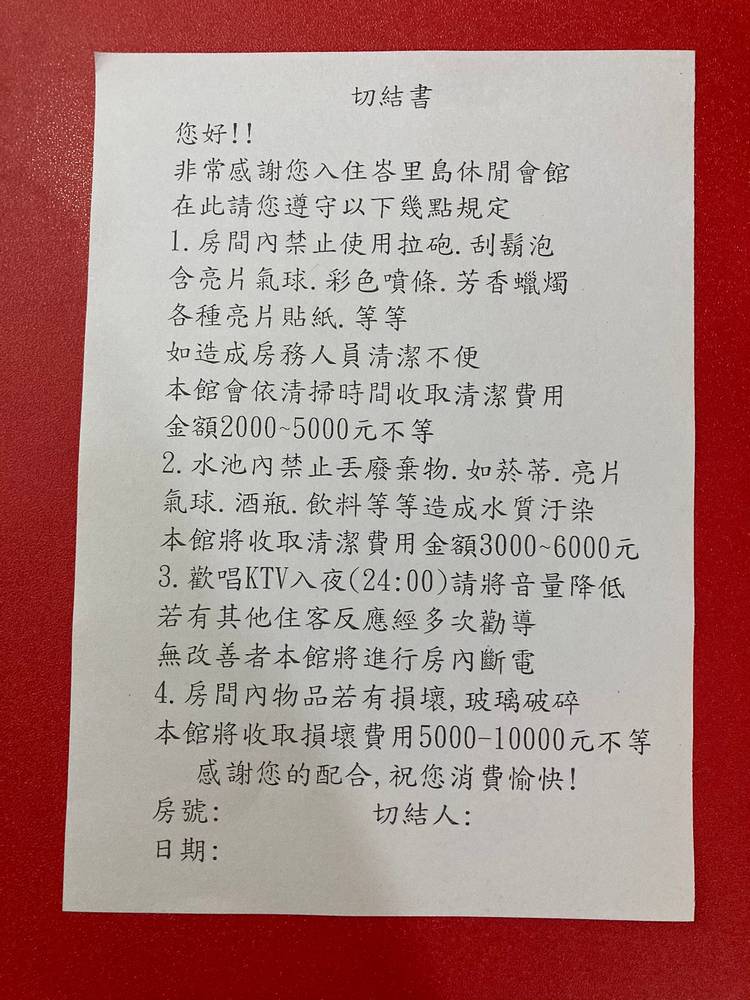 切結書
您好!!
非常感謝您入住峇里島休閒會館
在此請您遵守以下幾點規定
1.房間內禁止使用拉砲.刮鬍泡
含亮片氣球.彩色噴條.芳香蠟燭
各種亮片貼紙.等等
如造成房務人員清潔不便
本館會依清掃時間收取清潔費用
金額2000~5000元不等
2.水池內禁止丟廢棄物.如菸蒂.亮片
氣球.酒瓶.飲料等等造成水質汙染
本館將收取清潔費用金額3000~6000元
3.歡唱KTV入夜(24:00)請將音量降低
若有其他住客反應經多次勸導
無改善者本館將進行房內斷電
4.房間內物品若有損壞,玻璃破碎
本館將收取損壞費用5000-10000元不等
感謝您的配合,祝您消費愉快!
房號: 切結人:
日期: